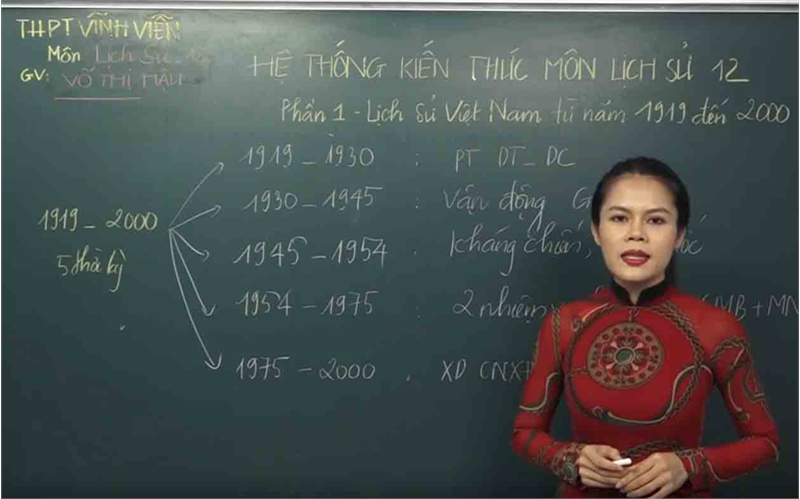 THPT VĨNH VIỄN
Môn Lịch Sử 12
GV: VÕ THỊ MẬU
HỆ THỐNG KIẾN THỨC MÔN LỊCH SỬ 12
Phần 1 - Lịch sử Việt Nam từ năm 1919 đến 2000
1919 - 2000
5 thời kỳ
1919 - 1930 : PT DT - DC
1930 - 1945 : Vận động G
1945 - 1954 : kháng chiến,
1954 - 1975 : 2 nhiệm MB + MN
1975 - 2000 . XD CNXH